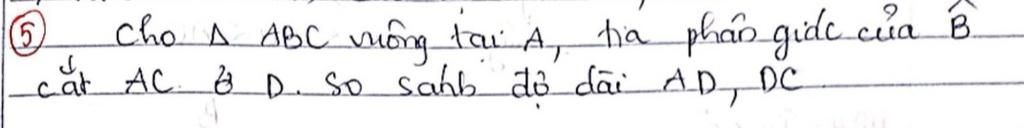 ⑤ Cho Δ ABC vuông tại A, tia phân giác của B̂
cắt AC ở D. So sánh độ dài AD, DC